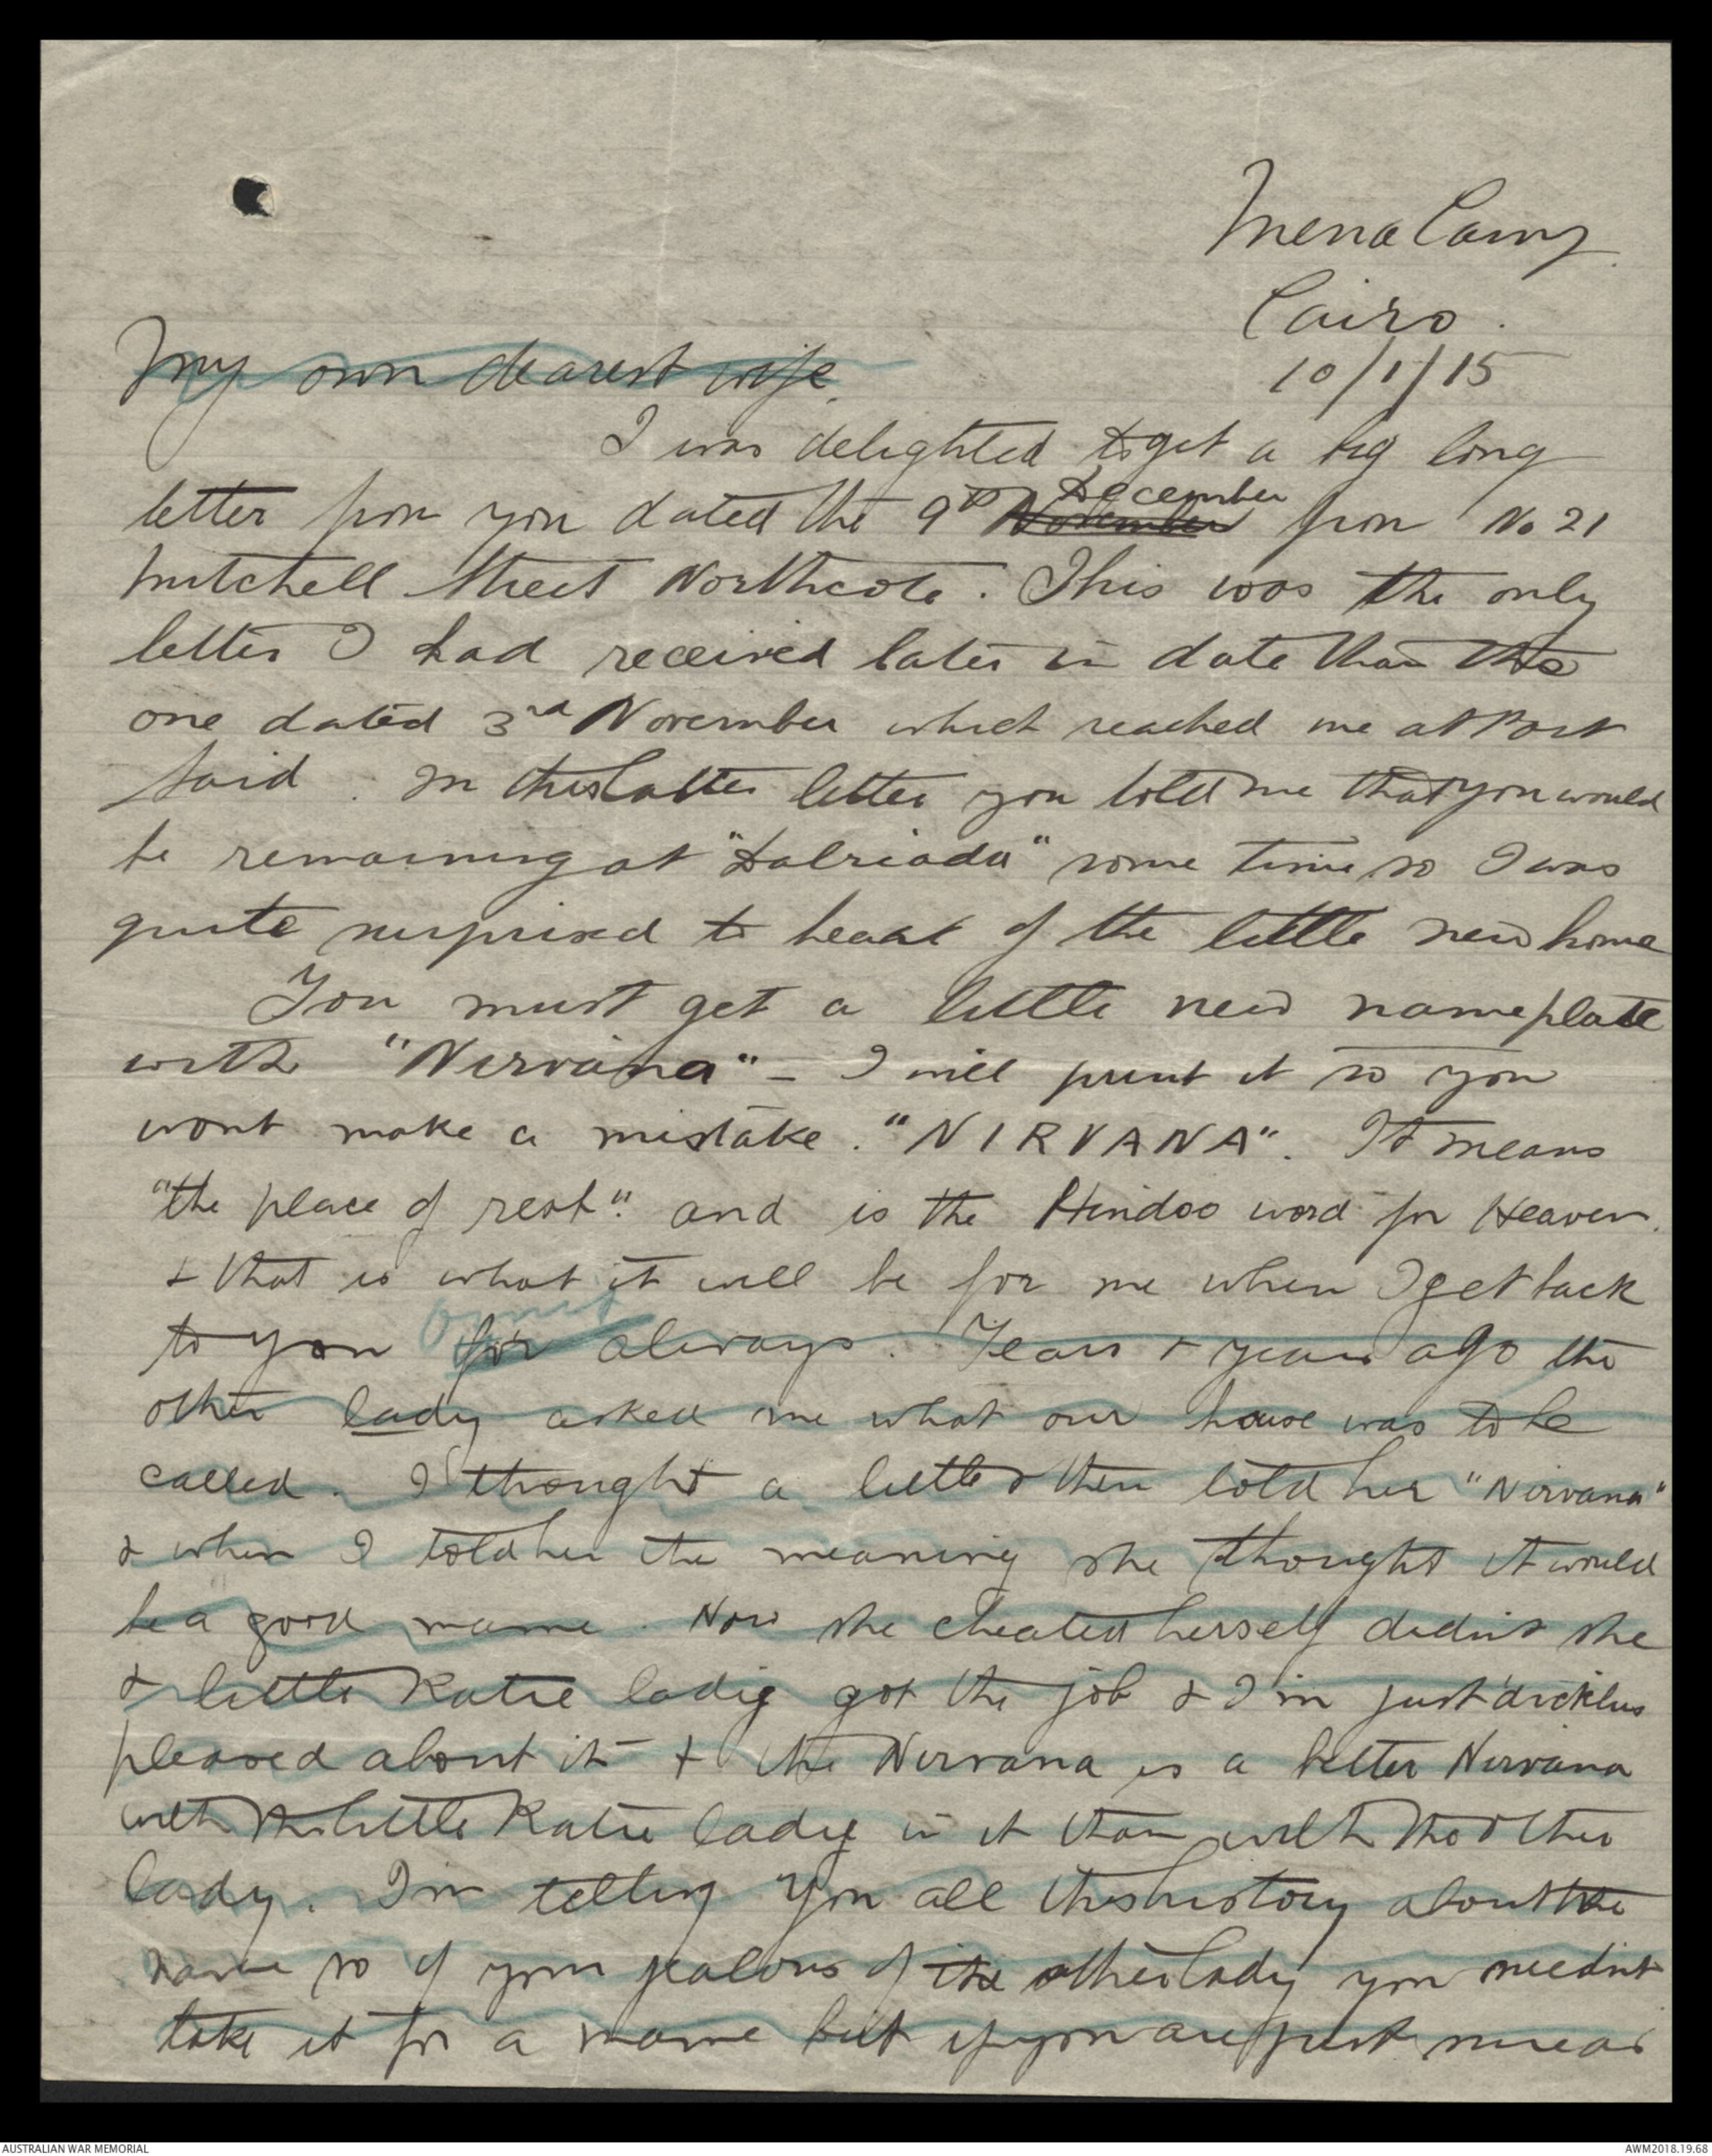 Mena Camp
Cairo.
10/1/15
My own dearest wife.
I was delighted to get a big long
letter from you dated the 9th November December from No 21
Mitchell Street Northcote. This was the only
letter I had received later in date than the
one dated 3rd November which reached me at Port
Said. In this latter letter you told me that you would
be remaining at "Dalriada" some time so I was
quite surprised to hear of the little new home
You must get a little new nameplate
with "Nirvana" - I will print it so you
wont make a mistake. "NIRVANA". It means
"the place of rest". and is the Hindoo word for Heaven.
& that is what it will be for me when I get back
omit
to you for always. Years & years ago the
other lady asked me what our house was to be
called. I thought a little & then told her "Nirvana"
& when I told her the meaning she thought it would
be a good name. Now she cheated herself didn't she
& little Katie lady got the job & I'm just
pleased about it & the Nirvana is a better Nirvana
with the little Katie lady in it than with the other
lady. I'm telling you all this history about the
name so if your jealous of the other lady you needn't
take it for a name but if you are just
AUSTRALIAN WAR MEMORIAL
AWM2018.19.68